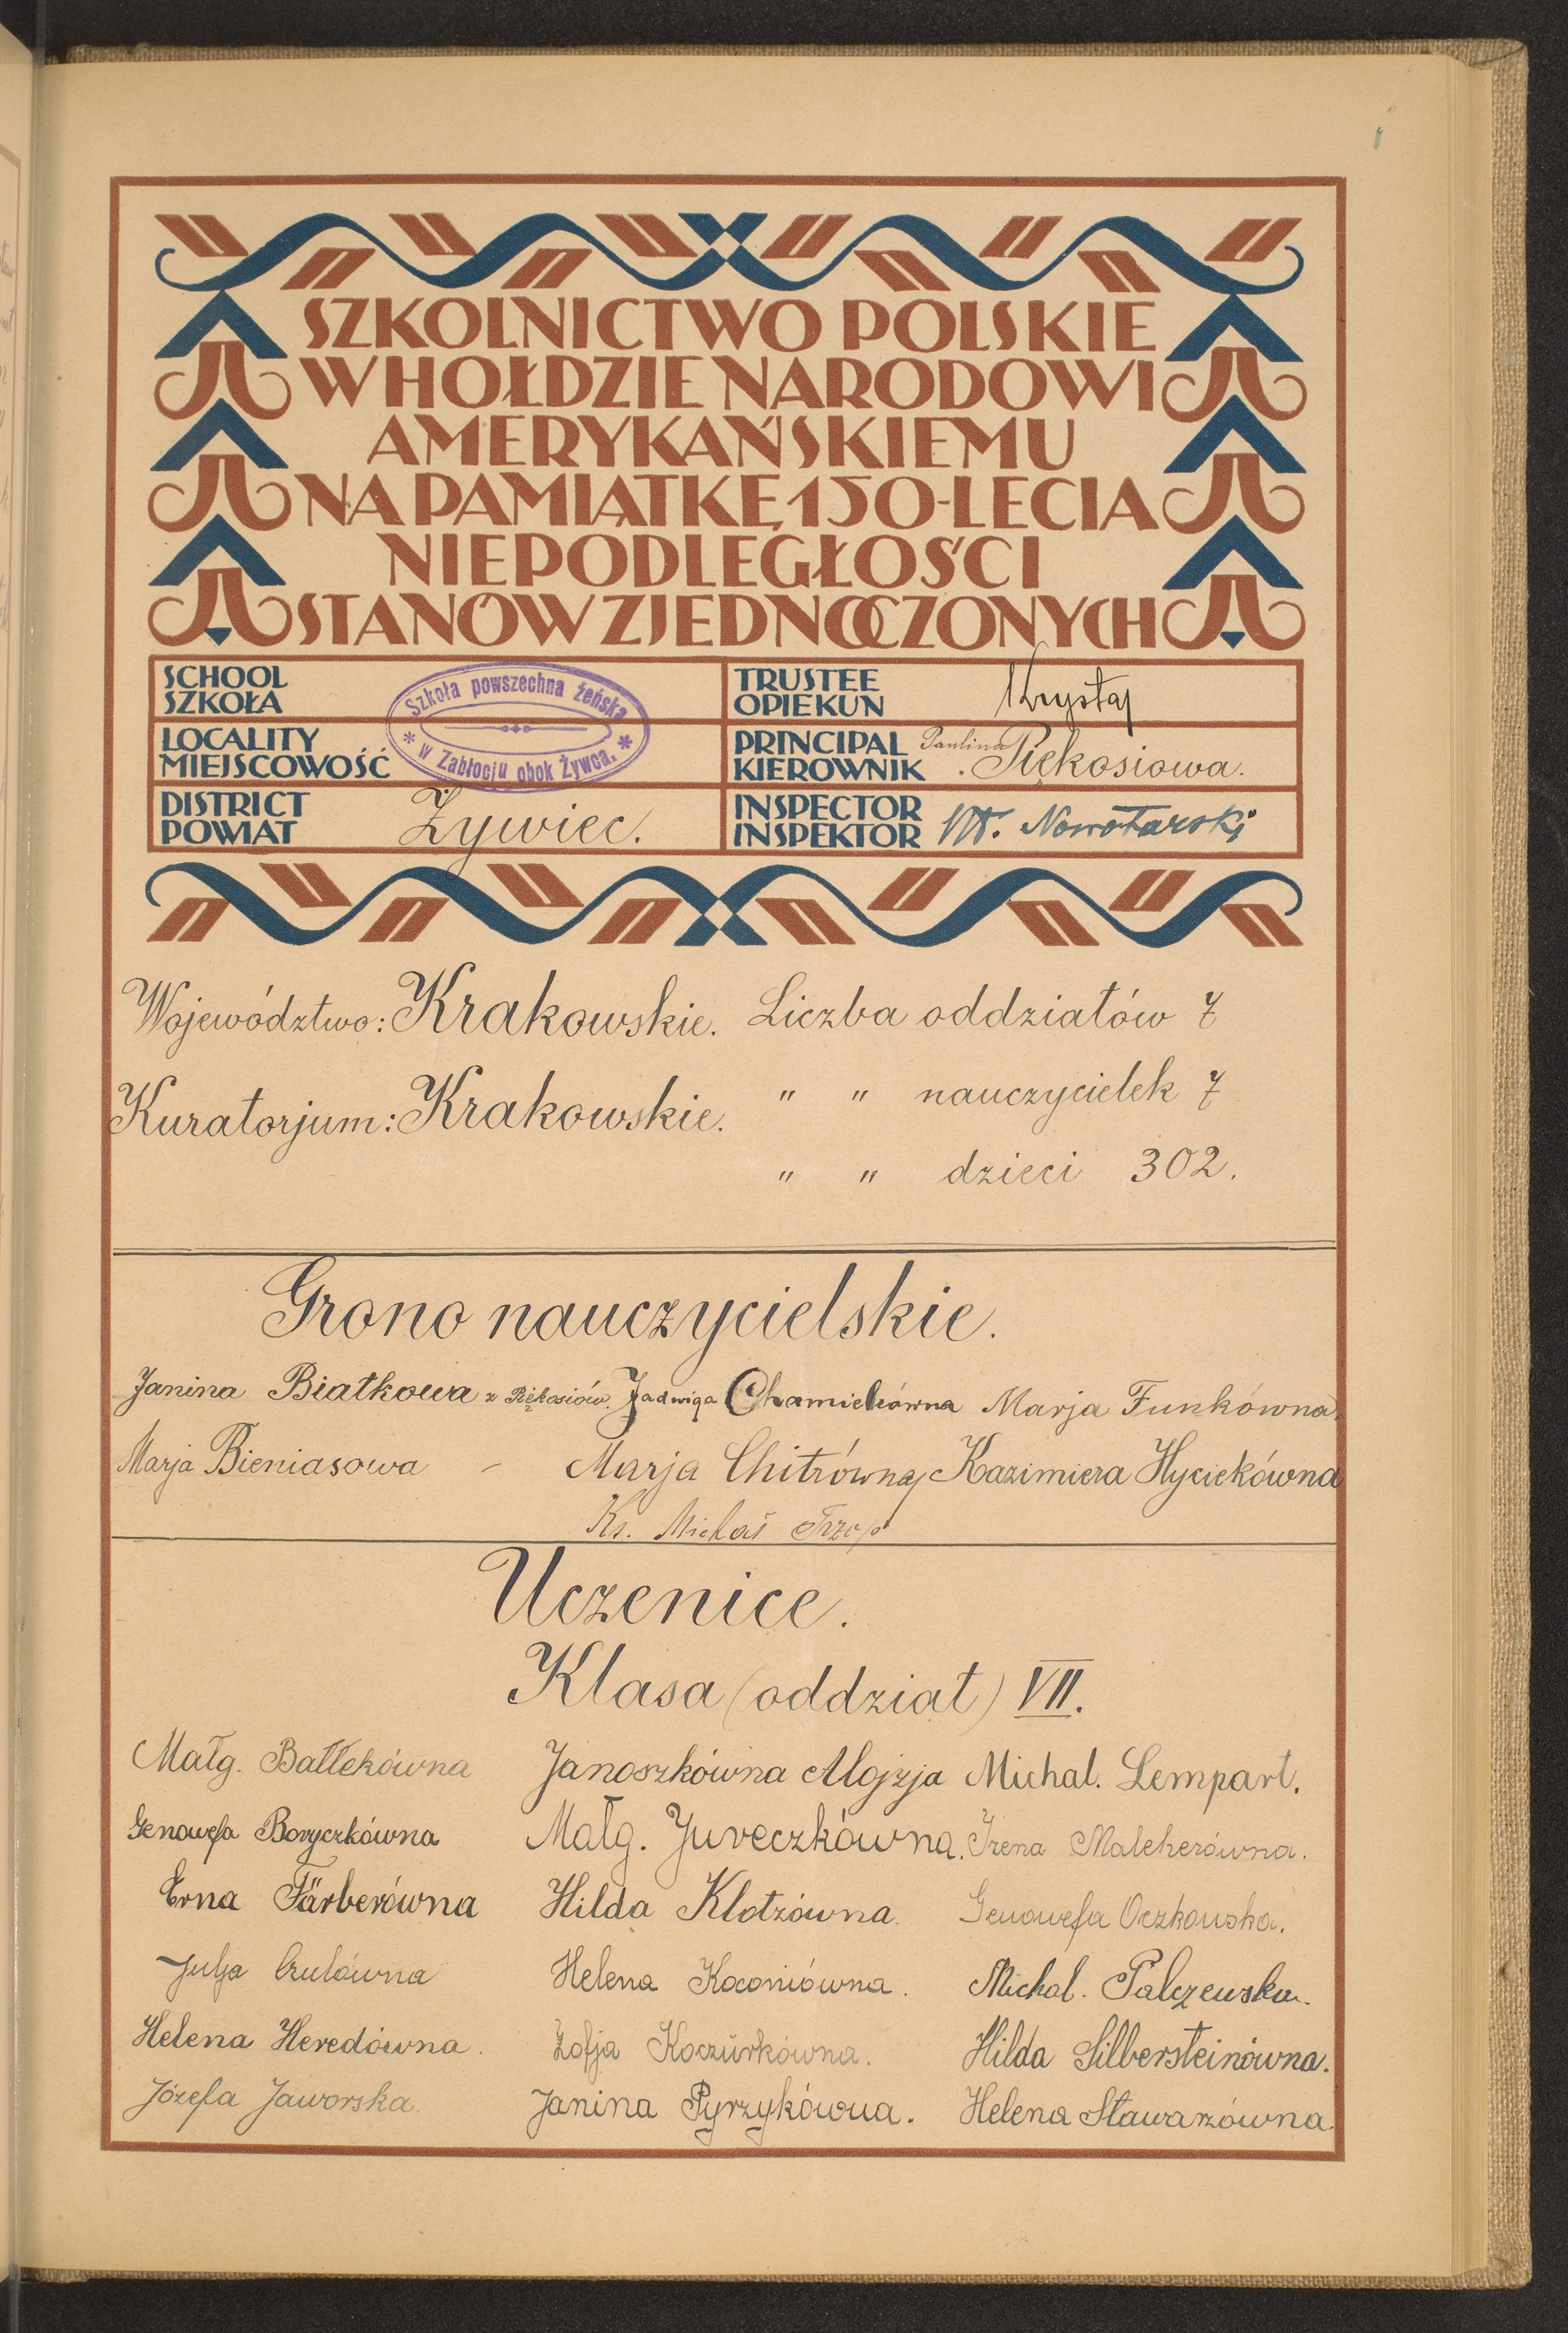 SZKOLNICTWO POLSKIE
W HOŁDZIE NARODOWI
AMERYKAŃSKIEMU
NA PAMIĄTKĘ 150-LECIA
NIEPODLEGŁOŚCI
STANÓW ZJEDNOCZONYCH
SCHOOL
SZKOŁA
Szkoła powszechna żeńska
* w Zabłociu obok Żywca. *
LOCALITY
MIEJSCOWOŚĆ
DISTRICT
POWIAT
Żywiec.
TRUSTEE
OPIEKUN
Krystaj
PRINCIPAL
KIEROWNIK
Paulina Piękosiowa.
INSPECTOR
INSPEKTOR
Nowotarski
Województwo: Krakowskie. Liczba oddziałów 7
Kuratorjum: Krakowskie. " " nauczycielek 7
" " dzieci 302.
Grono nauczycielskie.
Janina Białkowa z Piękosiów. Jadwiga Chamielcówna Marja Funkówna.
Marja Bieniasowa - Marja Chitrówna Kazimiera Hyciekówna
Ks. Michał Trzop
Uczenice.
Klasa (oddział) VII.
Małg. Bałłekówna Janoszkówna Alojzja Michal. Lempart.
Genowefa Boryczkówna Małg. Jureczkówna. Irena Malcherówna.
Erna Färberówna Hilda Klotzówna. Genowefa Oczkowska.
Julja Czulówna Helena Koconiówna. Michal. Palczewska.
Helena Heredówna. Zofja Koczurkówna. Hilda Silbersteinówna.
Józefa Jaworska. Janina Pyrzykówna. Helena Stawarzówna.